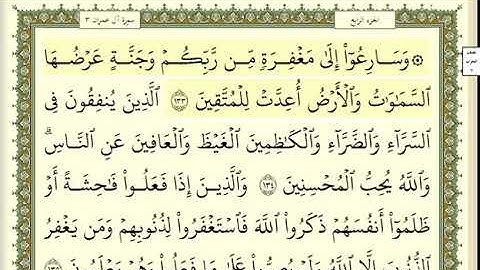 سورة آل عمران ٣
الجزء الرابع
۞ وَسَارِعُوٓا۟ إِلَىٰ مَغْفِرَةٍ مِّن رَّبِّكُمْ وَجَنَّةٍ عَرْضُهَا
ٱلسَّمَٰوَٰتُ وَٱلْأَرْضُ أُعِدَّتْ لِلْمُتَّقِينَ ١٣٣ ٱلَّذِينَ يُنفِقُونَ فِى
ٱلسَّرَّآءِ وَٱلضَّرَّآءِ وَٱلْكَٰظِمِينَ ٱلْغَيْظَ وَٱلْعَافِينَ عَنِ ٱلنَّاسِ ۗ
وَٱللَّهُ يُحِبُّ ٱلْمُحْسِنِينَ ١٣٤ وَٱلَّذِينَ إِذَا فَعَلُوا۟ فَٰحِشَةً أَوْ
ظَلَمُوٓا۟ أَنفُسَهُمْ ذَكَرُوا۟ ٱللَّهَ فَٱسْتَغْفَرُوا۟ لِذُنُوبِهِمْ وَمَن يَغْفِرُ
ٱلذُّنُوبَ إِلَّا ٱللَّهُ وَلَمْ يُصِرُّوا۟ عَلَىٰ مَا فَعَلُوا۟ وَهُمْ يَعْلَمُونَ ١٣٥